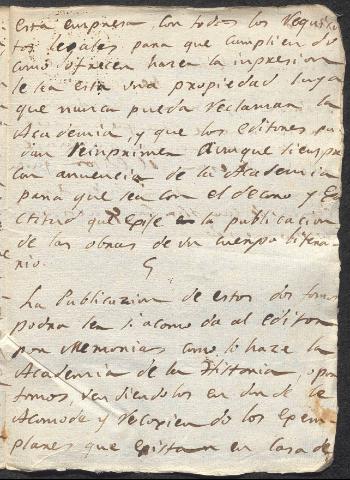 esta empresa con todos los requisi
tos legales para que cumpliendo
como ofrecen hazen la inpresion
le sea esta una propiedad suya
que nunca pueda reclamar la
Academia, y que los editores pu
dan reinprimir aunque siempre
con anuencia de la Academia
para que sea con el decoro y Ex
ctitud que exije en la publicacion
de las obras de un cuerpo litera
rio.
La Publicazion de estos dos tomos
podra ser si acomoda al editor
por Memorias, como lo haze la
Academia de la Historia, o por
tomos, vendiendolos en donde le
Acomode y recogiendo los exem
plares que existan en casa de